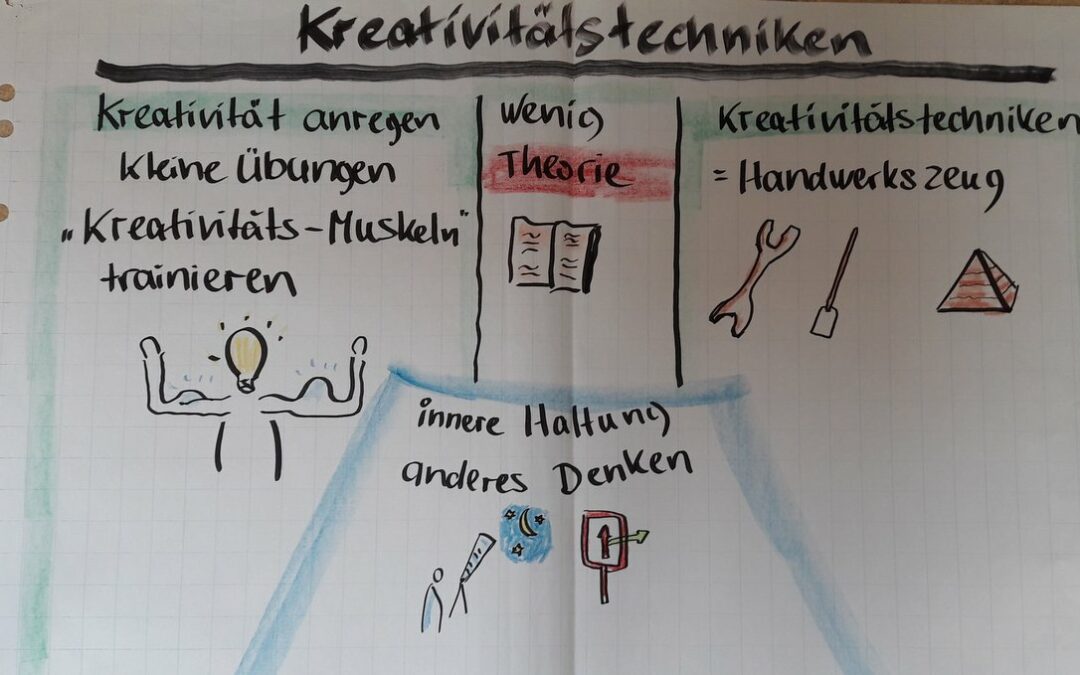 Kreativitätstechniken
Kreativität anregen
kleine Übungen
„Kreativitäts-Muskeln"
trainieren
wenig
Theorie
Kreativitätstechniken
= Handwerkszeug
innere Haltung
anderes Denken